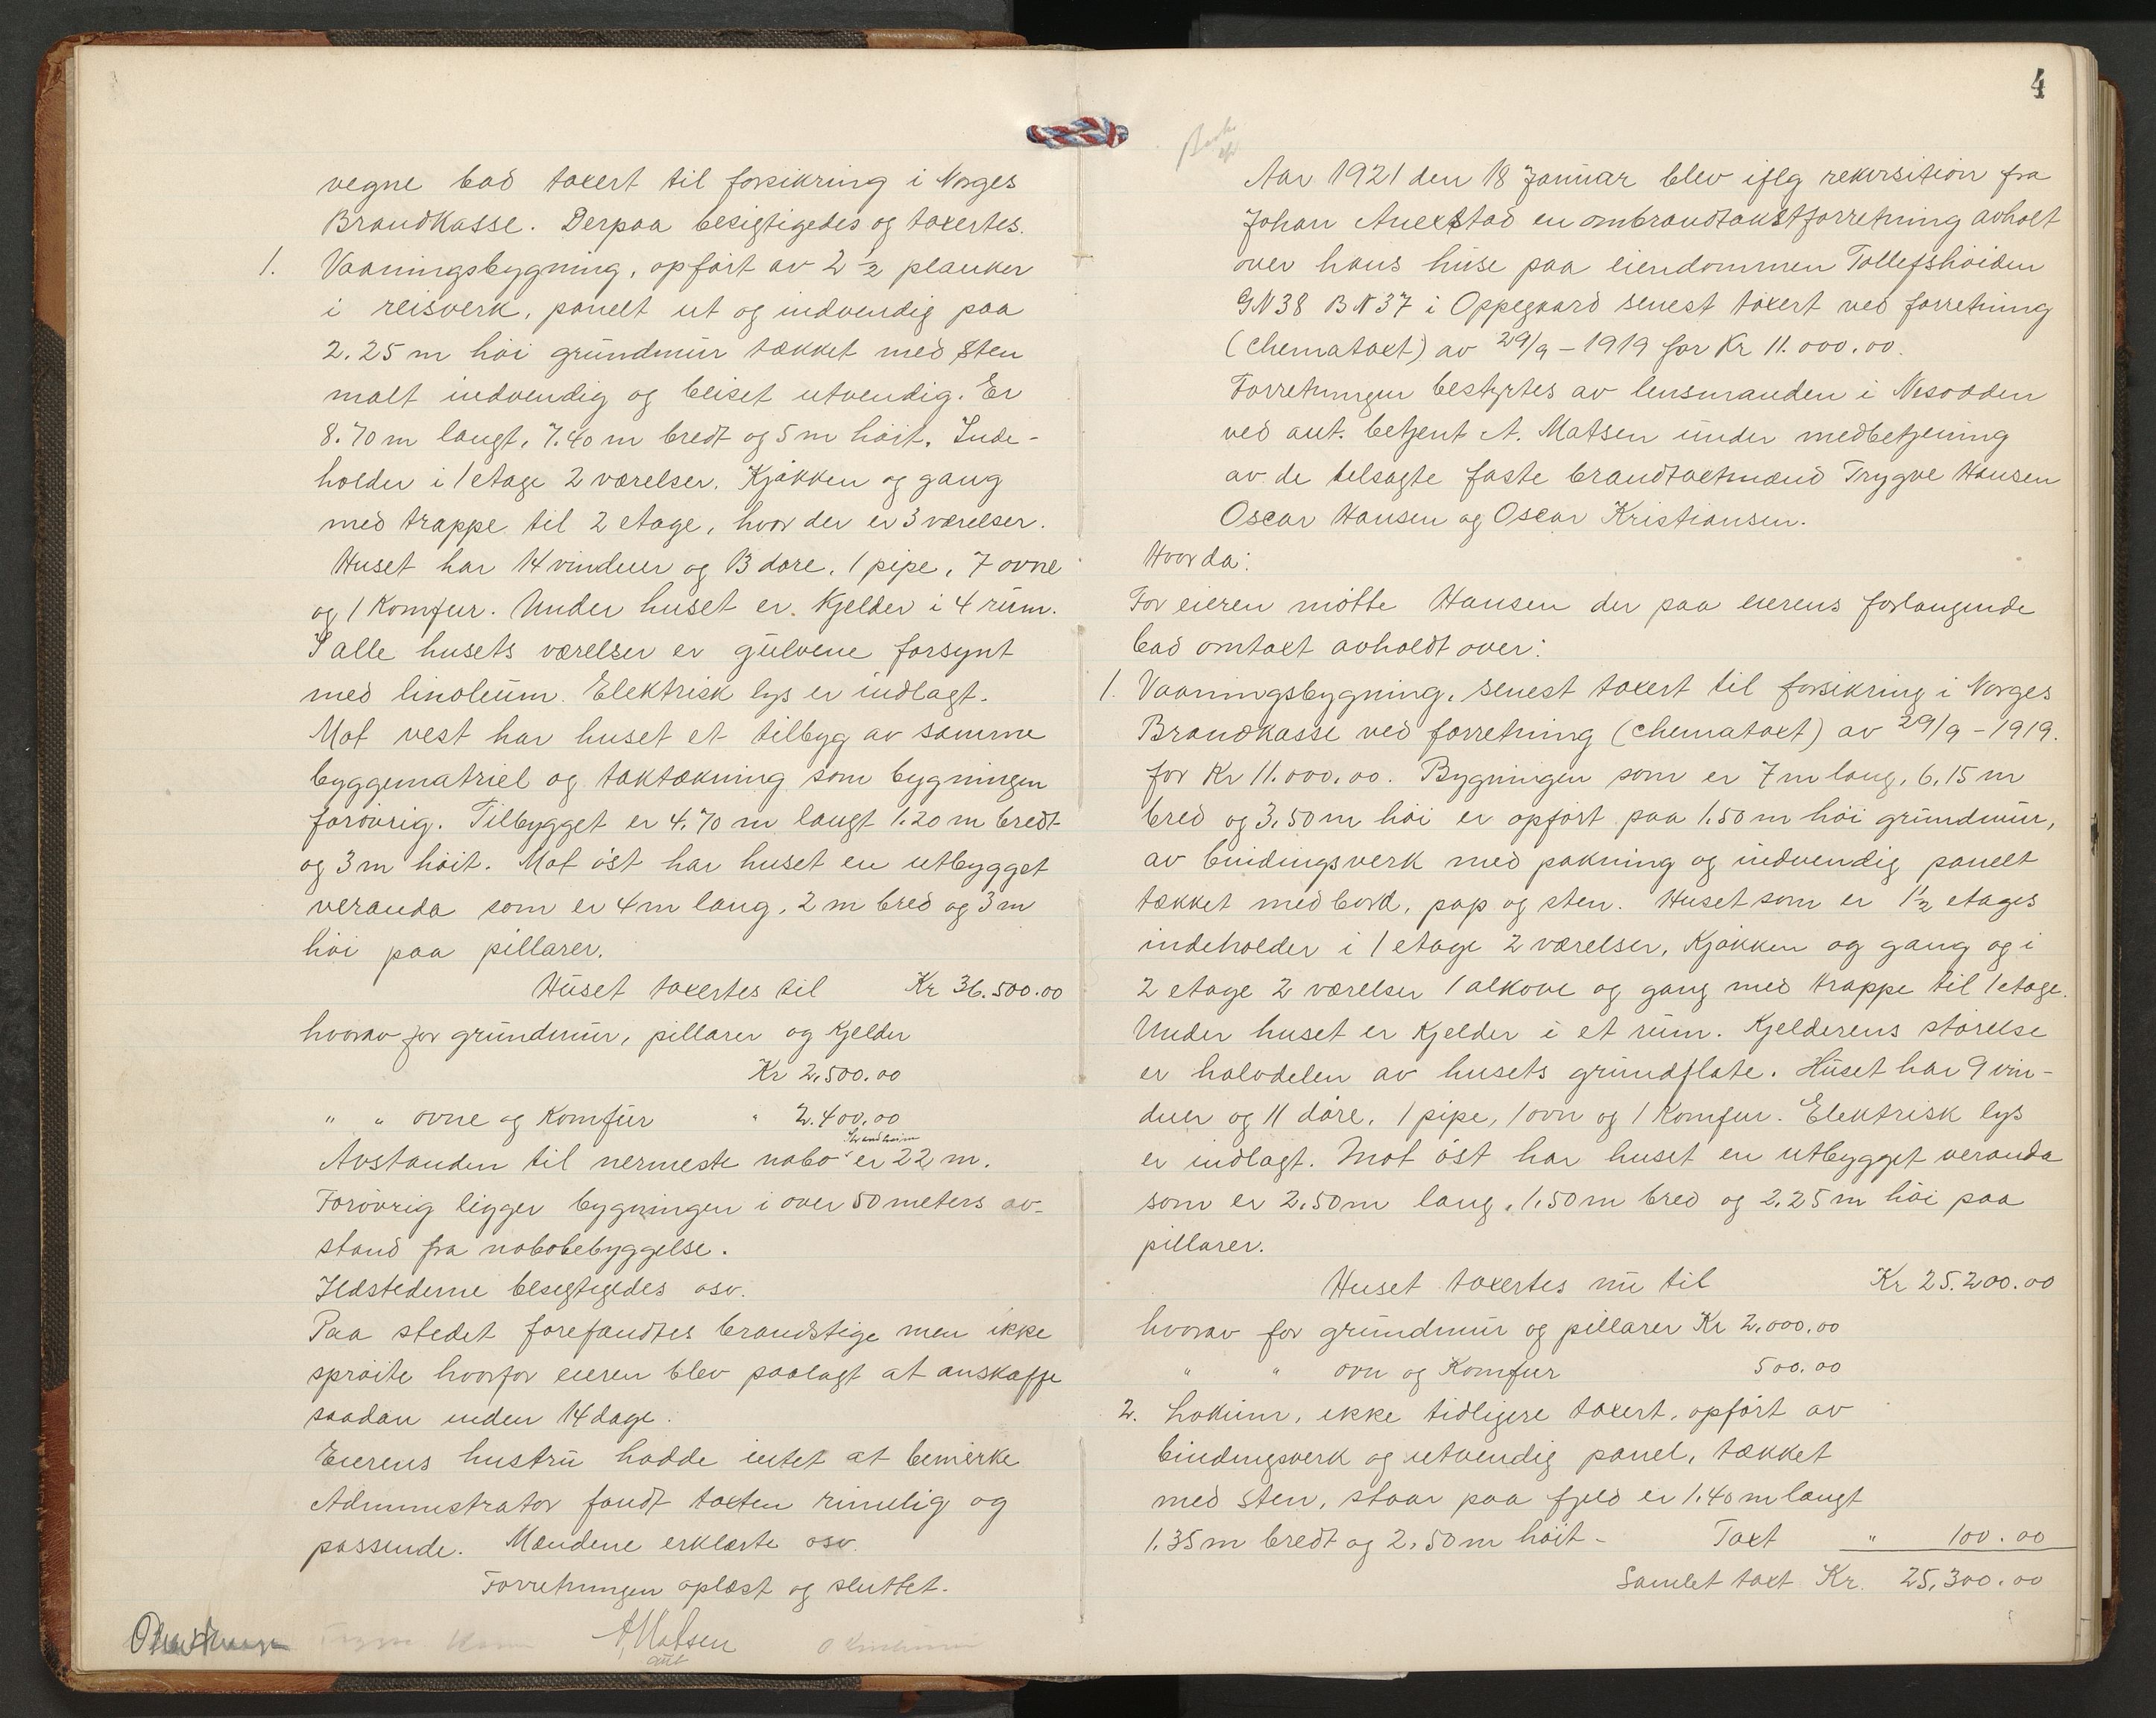 vegne bad taxert til forsikring i Norges
Brandkasse. Derpaa besigtigedes og taxertes.
1. Vaaningsbygning, opført av 2 ½ planker
i reisverk, panelt ut og indvendig paa
2.25 m høi grundmur tækket med sten
malt indvendig og beiset utvendig. Er
8.70 m langt, 7.40 m bredt og 5 m høit. Inde-
holder i 1 etage 2 værelser, Kjøkken og gang
med trappe til 2 etage, hvor der er 3 værelser.
Huset har 14 vinduer og 13 døre, 1 pipe, 7 ovne
og 1 Komfur. Under huset er Kjelder i 4 rum.
I alle husets værelser er gulvene forsynt
med linoleum. Elektrisk lys er indlagt.
Mot vest har huset et tilbyg av samme
byggematriel og taktækning som bygningen
forøvrig. Tilbygget er 4.70 m langt 1.20 m bredt
og 3 m høit. Mot øst har huset en utbygget
veranda som er 4 m lang, 2 m bred og 3 m
høi paa pillarer.
Huset taxertes til Kr 36.500.00
hvorav for grundmur, pillarer og Kjelder
Kr 2.500.00
" " ovne og Komfur " 2.400.00
Avstanden til nermeste nabo er 22 m.
Forøvrig ligger bygningen i over 50 meters av-
stand fra nabobebyggelse.
Ildstederne besigtigedes osv.
Paa stedet forefandtes brandstige men ikke
sprøite hvorfor eieren blev paalagt at anskaffe
saadan inden 14 dage.
Eierens hustru hadde intet at bemerke
Administrator fandt taxten rimelig og
passende. Mændene erklærte osv.
Forretningen oplæst og sluttet.
A. Matsen
aut
4
Aar 1921 den 18 Januar blev iflg rekvisition fra
Johan en ombrandtakstforretning avholt
over hans huse paa eiendommen Tollefshøiden
GN 38 BN 37 i Oppegaard senest taxert ved forretning
(chemataxt) av 29/9 - 1919 for Kr 11.000.00.
Forretningen bestyrtes av lensmanden i Nesodden
ved aut. betjent A. Matsen under medbetjening
av de tilsagte faste brandtaxtmænd Trygve Hansen
Oscar Hansen og Oscar Kristiansen.
Hvor da:
For eieren møtte Hansen der paa eierens forlangende
bad omtaxt avholdt over:
1. Vaaningsbygning, senest taxert til forsikring i Norges
Brandkasse ved forretning (chemataxt) av 29/9 - 1919.
for Kr 11.000.00. Bygningen som er 7 m lang, 6.15 m
bred og 3.50 m høi er opført paa 1.50 m høi grundmur,
av bindingsverk med pakning og indvendig panelt
tækket med bord, pap og sten. Huset som er 1½ etages
indeholder i 1 etage 2 værelser, Kjøkken og gang og i
2 etage 2 værelser 1 alkove og gang med trappe til 1 etage.
Under huset er Kjelder i et rum. Kjelderens størelse
er halvdelen av husets grundflate. Huset har 9 vin-
duer og 11 døre, 1 pipe, 1 ovn og 1 Komfur. Elektrisk lys
er indlagt. Mot øst har huset en utbygget veranda
som er 2.50 m lang, 1.50 m bred og 2.25 m høi paa
pillarer.
Huset taxertes nu til Kr 25.200.00
hvorav for grundmur og pillarer Kr 2.000.00
" " ovn og Komfur 500.00
2. Lokum, ikke tidligere taxert, opført av
bindingsverk og utvendig panel, tækket
med sten, staar paa fjeld er 1.40 m langt
1.35 m bredt og 2.50 m høit - Taxt " 100.00
Samlet taxt Kr. 25.300.00